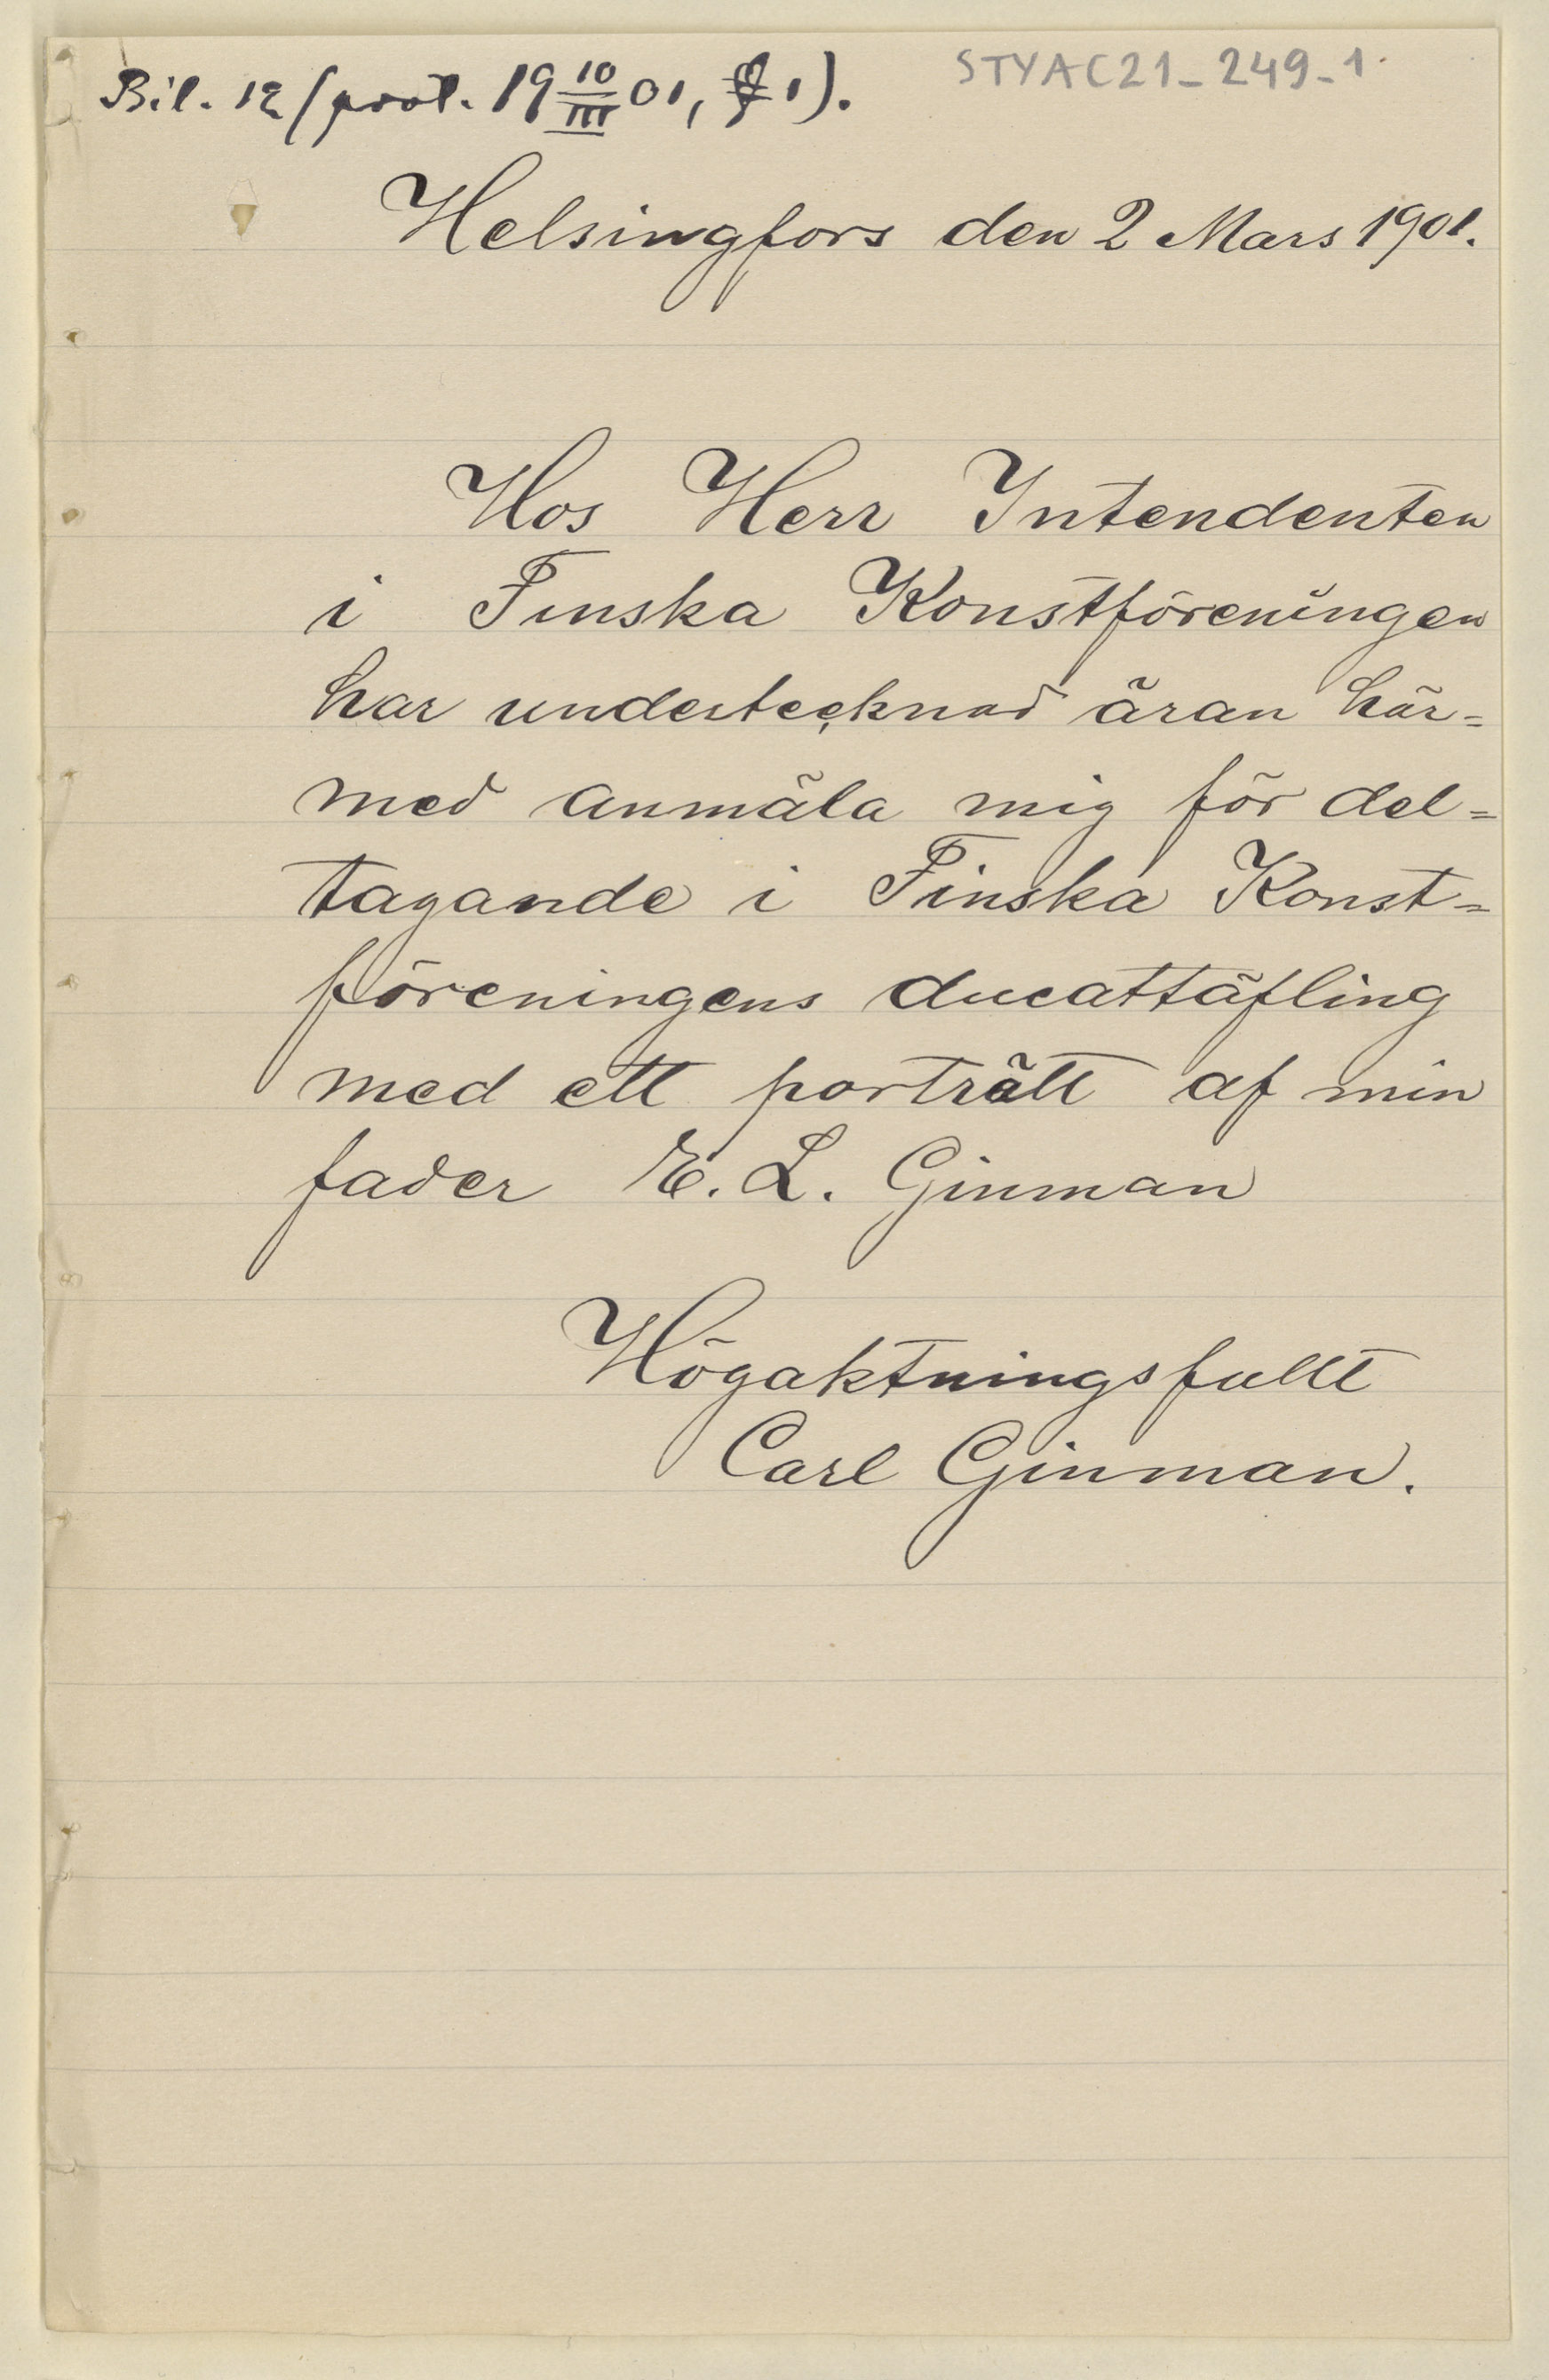 Bil. 12 (prot. 19 10/III 01, § 1).
STYAC21_249_1.
Helsingfors den 2 Mars 1901.
Hos Herr Intendenten
i Finska Konstföreningen
har undertecknad äran här=
med anmäla mig för del=
tagande i Finska Konst=
föreningens ducattäfling
med ett porträtt af min
fader E. L. Ginman
Högaktningsfullt
Carl Ginman.